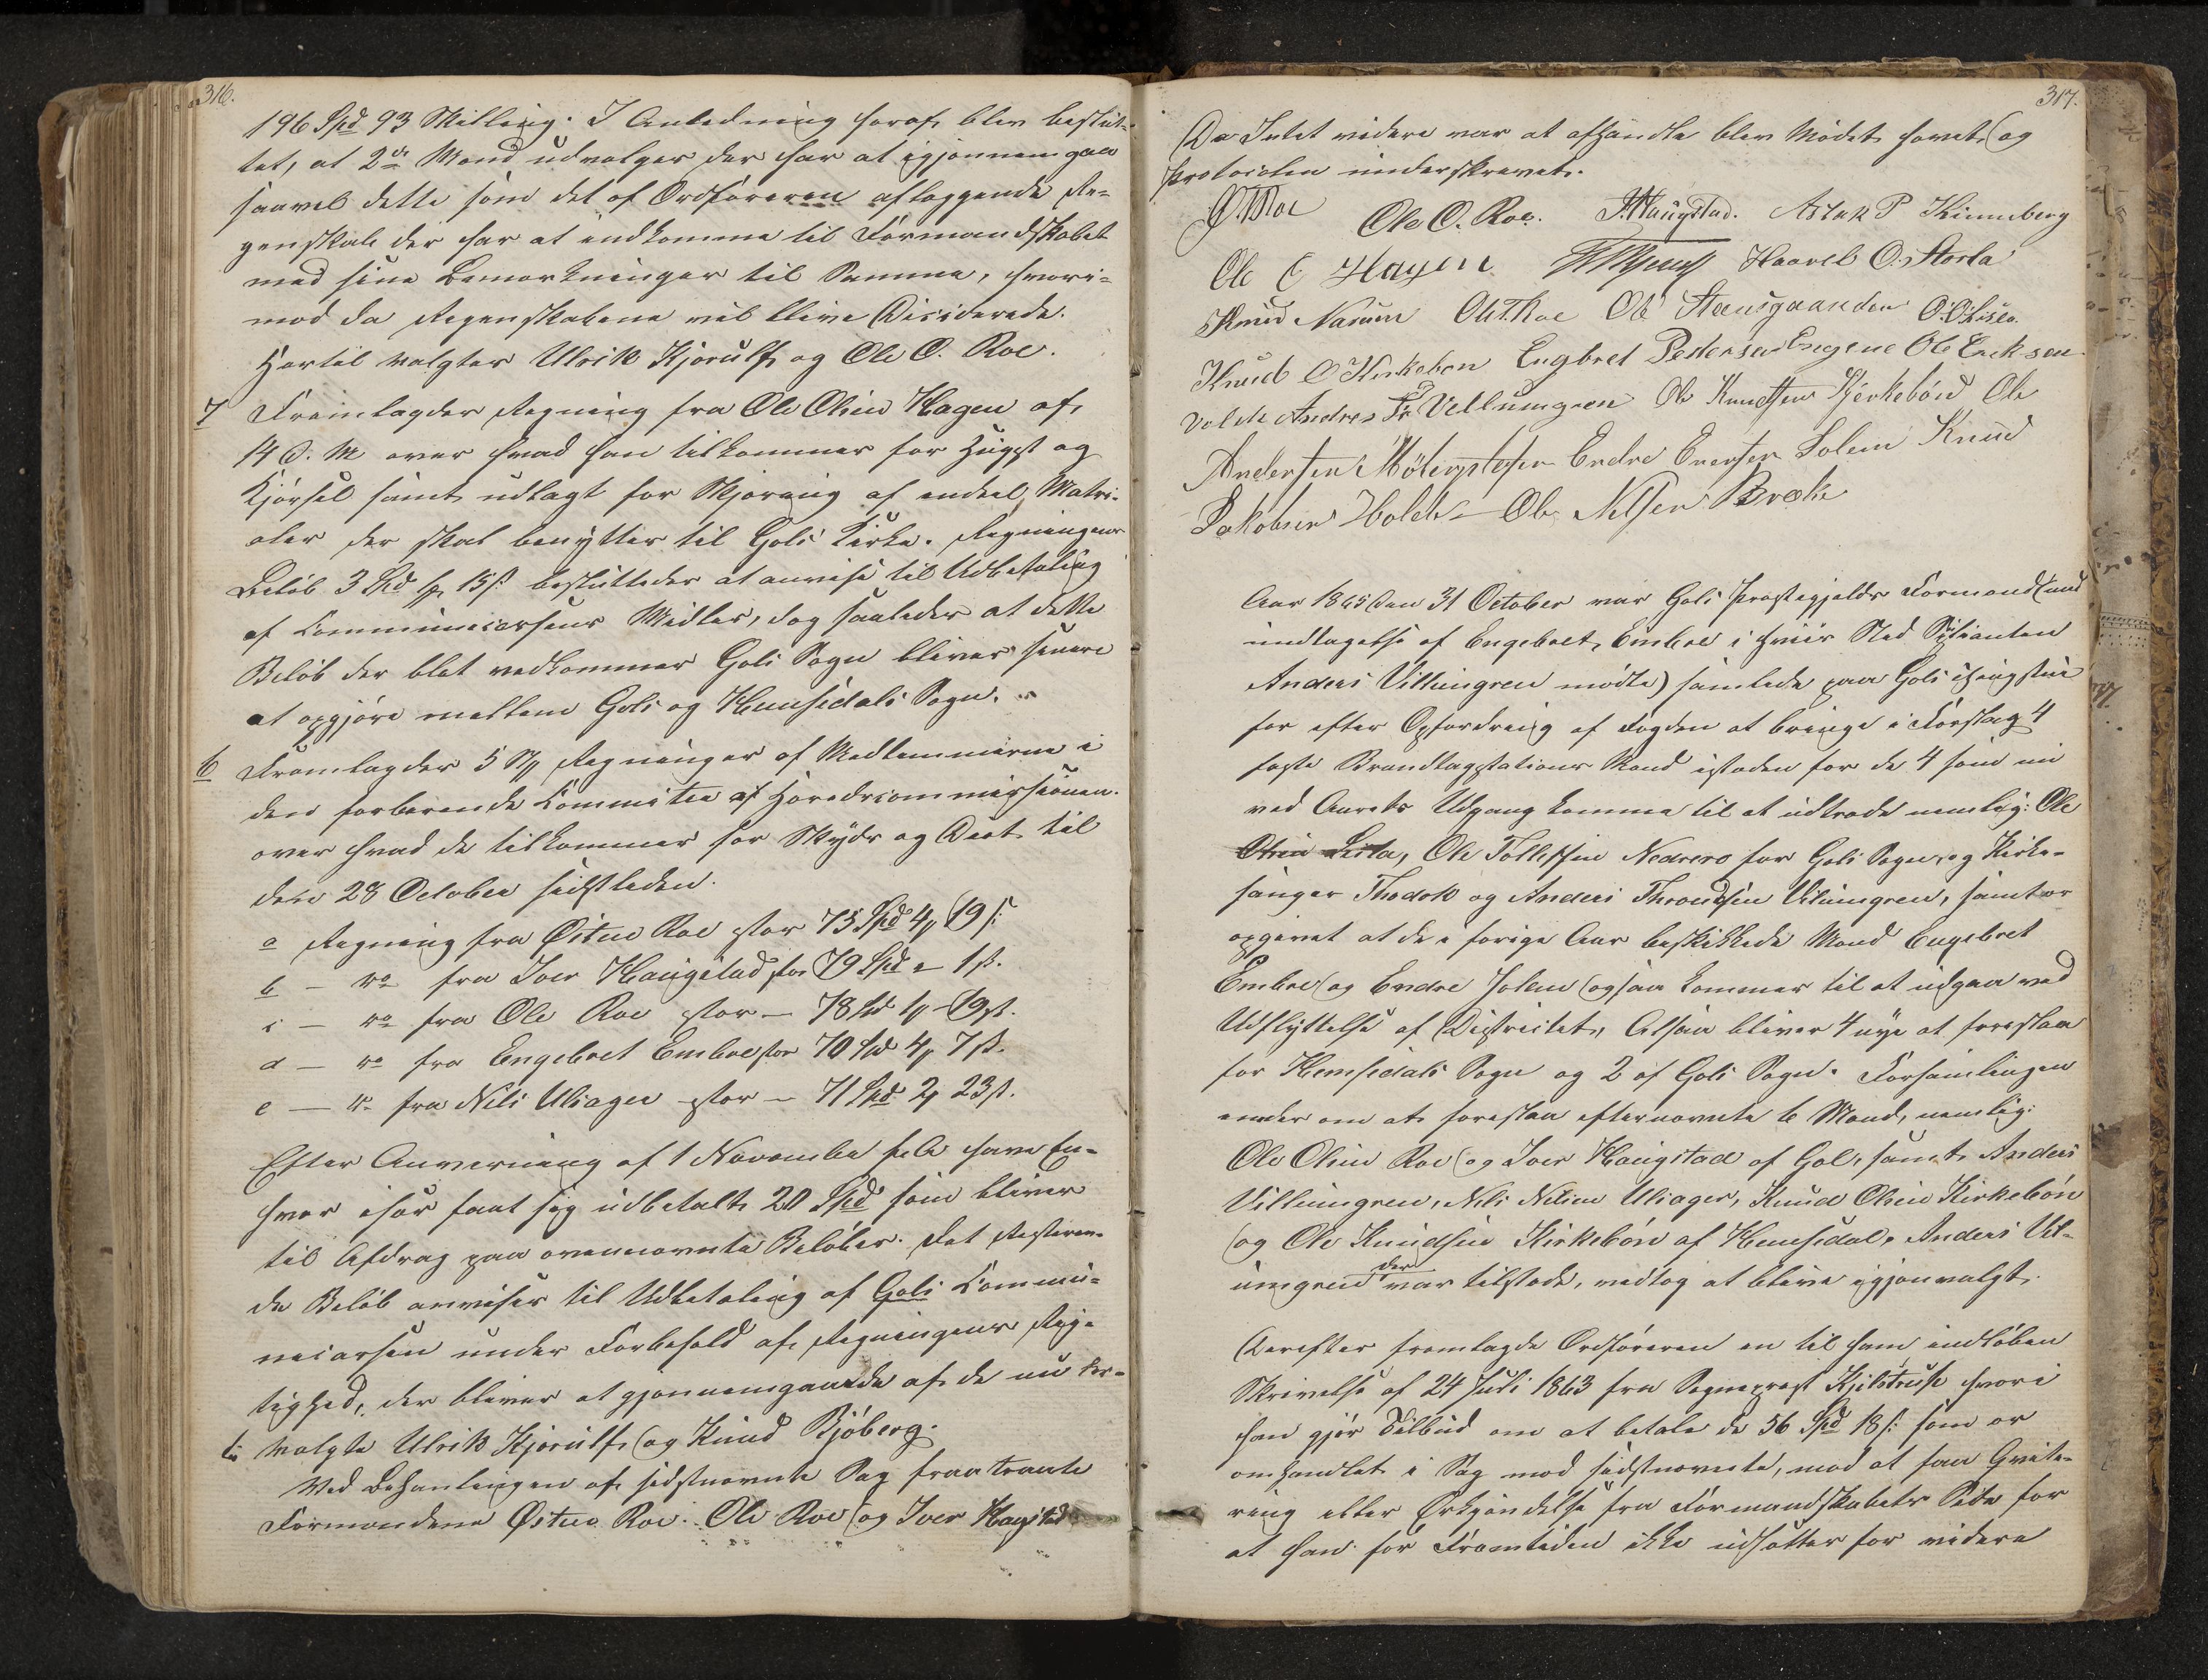 316.
196 Spd 93 Skilling. I Anledning heraf blev beslut-
tet, at 2de Mænd udvælges der har at igjennemgaa
saavel dette som det af Ordføreren aflæggende Re-
genskab der har at indkomme til Formandskabet
med sine Bemærkninger til Samme, hvori-
mod da Regenskabene vil blive Desiderede.
Hertil valgtes Ulrik Kjerulf og Ole O. Roe.
7 Fremlagdes Regning fra Ole Olsen Hagen af
14 d. M over hvad han tilkommer for Hugst og
Kjørsel samt udlagt for Skjæring af endeel Matri-
aler der skal benyttes til Gols Kirke. Regningens
Beløb 3 Spd 15 s. besluttedes at anvise til Udbetaling
af Communecassens Midler, dog saaledes at dette
Beløb der blot vedkommer Gols Sogn bliver senere
at opgjøre mellem Gols og Hemsedals Sogn.
6 Fremlagdes 5 St Regninger af Medlemmerne i
den forberende Committee af Herredscommissionen
over hvad de tilkommer for Skyds og Diæt til
den 28 October sidstleden.
a Regning fra Østen Roe stor 75 Spd 4 19 s.
b – do fra Iver Haugstad stor 79 Spd – 1 s.
c – do fra Ole Roe stor – 78 Spd 1 19 s.
d – do fra Engebret Embre stor 70 Spd 4 7 s.
e – do fra Nils Uliager stor – 71 Spd 2 23 s.
Efter Anvisning af 1 November have En-
hver især faaet sig udbetalt 20 Spd som bliver
til Afdrag paa ovennævnte Beløber. Det Resteren-
de Beløb anvises til Udbetaling af Gols Commu-
necassen under Forbehold af Regningens Rig-
tighed, der bliver at gjennemgaaede af de nu her-
til valgte Ulrik Kjerulf og Knud Bjøberg.
Ved Behanlingen af sidstnævnte Sag fraatraadte
Formændene Østen Roe. Ole Roe og Iver Haugstad
317.
Da Intet videre var at afhandle blev Mødet hævet og
Protocolen underskrevet.
Ø. Roe Ole O. Roe. I. Haugstad. Aslak P Kinneberg
Ole O Hagen Haavel O. Storla
Knud Narum Ole T. Roe Ole Steensgaarden
Knud O Kirkebøn Engbret Pedersen Engene Ole Erik-sen
Andres Tr Vellumgren Ole Knudsen Kjerkebøn Ole
Andersen Endre Enersen Solem Knud
Jakobsen Holde – Ole Nilsen Bræke
Aar 1865 den 31 October var Gols Præstegjelds Formænd (und
undtagelse af Engebret Embre i hvis Sted Suplianten
Anders Villumgren mødte) samlede paa Gols thingstue
for efter Opfordring af Fogden at bringe i Forslag 4
faste Brandtagstations Mænd istæden for de 4 som nu
ved Aarets Udgang komme til at udtræde nemlig: Ole
Olsen Liola, Ole Tollefsen Nedrero for Gols Sogn og Kirke-
sanger Thodok og Anders Throndsen Vilumgren, samt er
opgivet at de i forige Aar beskikkede Mænd Engebret
Embre og Endre Solem ogsaa kommer til at udgaa ved
Udflyttelse af Districtet, Altsaa bliver 4 nye at foreslaa
for Hemsedals Sogn og 2 af Gols Sogn. Forsamlingen
endes om at foreslaa efternævnte 6 Mænd, nemlig:
Ole Olsen Roe og Iver Haugstad af Gol, samt Anders
Villumgren, Nils Nilsen Uliager, Knud Olsen Kirkebøn
og Ole Knudsen Kirkebøn af Hemsedal. Anders Vil-
umgren der var tilstæde, vedtog at blive igjenvalgt.
Derefter fremlagde Ordføreren en til ham indløben
Skrivelse af 24 Juli 1863 fra Sogneprest Kjelstrup hvori
han gjør Tilbud om at betale de 56 Spd 18 s. som er
omhandlet i Sag med sidstnævnte, mod at faa Qvite-
ring eller Erkjendelse fra Formandskabets Side for
at han for Fremtiden ikke udsættes for videre